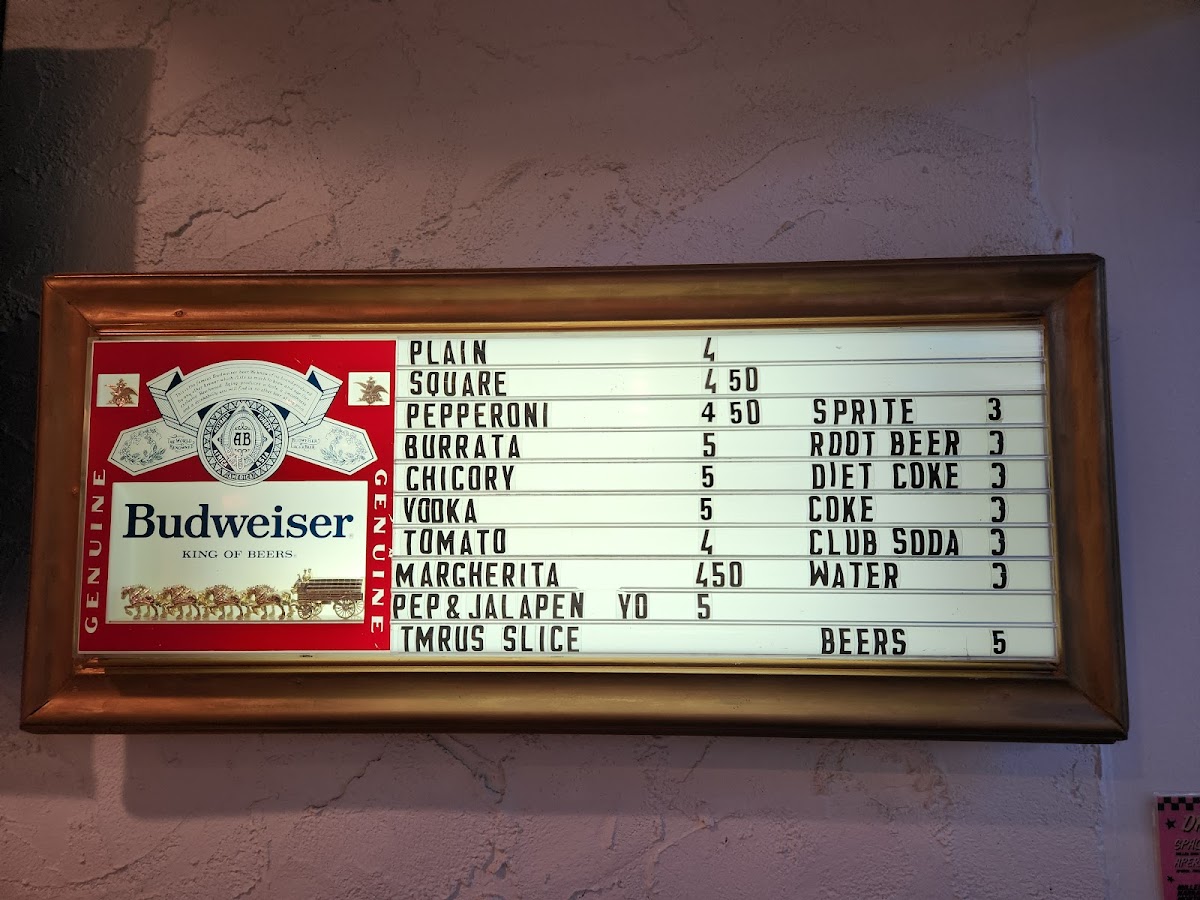 GENUINE
AB
Budweiser
KING OF BEERS
GENUINE
PLAIN 4
SQUARE 4 50
PEPPERONI 4 50 SPRITE 3
BURRATA 5 ROOT BEER 3
CHICORY 5 DIET COKE 3
VODKA 5 COKE 3
TOMATO 4 CLUB SODA 3
MARGHERITA 450 WATER 3
PEP & JALAPEN YO 5
TMRUS SLICE BEERS 5